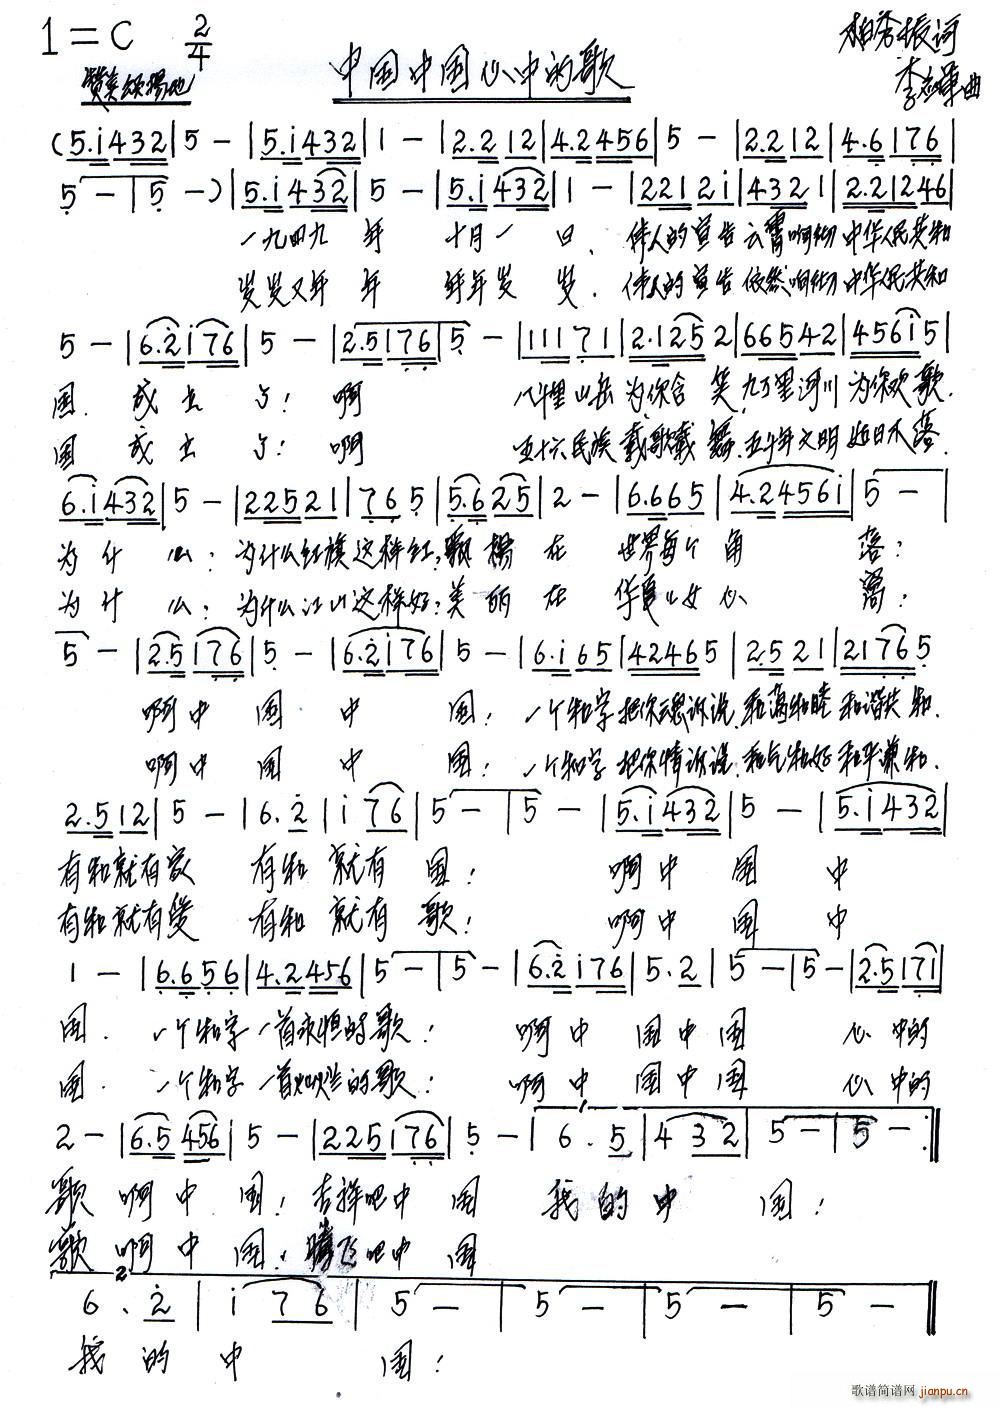 1=C 2/4
中国中国心中的歌
柏秀振词
赞美颂扬地
曲
(5.i432|5 -|5.i432|1 -|2.2 12|4.2456|5 -|2.212|4.6176|
5 -|5 -)|5.i432|5 -|5.i432|1 -|2212i|4321|2.21246|
一九四九 年 十月一 日. 伟人的宣告云霄响彻 中华人民共和
岁岁又年 年 年年岁 岁. 伟人的宣告依然响彻 中华人民共和
5 -|6.2i76|5 -|2.5176|5 -|11171|2.1252|66542|456i5|
国. 成立了! 啊 八千里山岳为你含笑,九万里河川为你欢歌.
国 成立了! 啊 五十六民族载歌载舞.五千年文明如日不落.
6.i432|5 -|22521|765|5.625|2 -|6.665|4.2456i|5 -|
为什么:为什么红旗这样红:飘扬在 世界每个角 落:
为什么:为什么江山这样好:美丽在 华夏儿女心 窝:
5 -|2.5176|5 -|6.2i76|5 -|6.i65|42465|2.521|21765
啊中国中国:一个和字把你魂诉说.和满和睦和谐共和.
啊中国中国:一个和字把你情诉说.和气和好和平兼和.
2.512|5 -|6.2|i76|5 -|5 -|5.i432|5 -|5.i432|
有和就有家 有和就有国: 啊中国中
有和就有爱 有和就有歌: 啊中国中
1 -|6.656|4.2456|5 -|5 -|6.2i76|5.2|5 -|5 -|2.5171|
国. 一个和字一首永恒的歌: 啊中国中国 心中的
国. 一个和字一首灿烂的歌: 啊中国中国 心中的
2 -|6.5456|5 -|225i76|5 -|6.5|432|5 -|5 -:||
歌啊中国:吉祥吧中国 我的中国:
歌啊中国.腾飞吧中国
6.2|i76|5 -|5 -|5 -|5 -||
我的中国:
歌谱简谱网 jianpu.cn